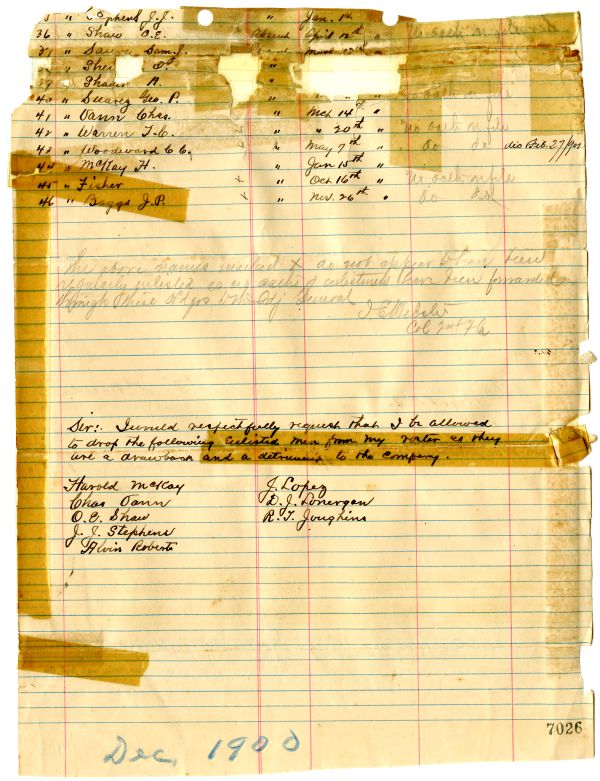 " Stephens J. J. " Jan. 1st
36 " Shaw O. E. Absent April 12th "
" Sam. J.
"
39 " A. "
40 " Suarez Geo. P. " " "
41 " Vann Chas. " Mch 14th " No oath on file
42 " Warren T. C. x " " 20th " No oath on file
43 " Woodward C. C. x " May 7th " do do dis Feb. 27/901
44 " McKay H. " Jan 15th "
45 " Fisher x " Oct 16th " No oath on file
46 " Baggs J. P. x " Nov. 26th " do do
The above names marked x do not appear to have been
regularly enlisted as no oaths of enlistment have been forwarded
through these Hdqrs to the Adj General
Col 2nd
Sir:. I would respectfully request that I be allowed
to drop the following enlisted men from my roster as they
are a drawback and a detriment to the company.
Harold McKay J. Lopez
Chas Vann D. J. Lonergan
O. E. Shaw R. T. Joughins
J. J. Stephens
Alvin Roberts
7026
Dec. 1900